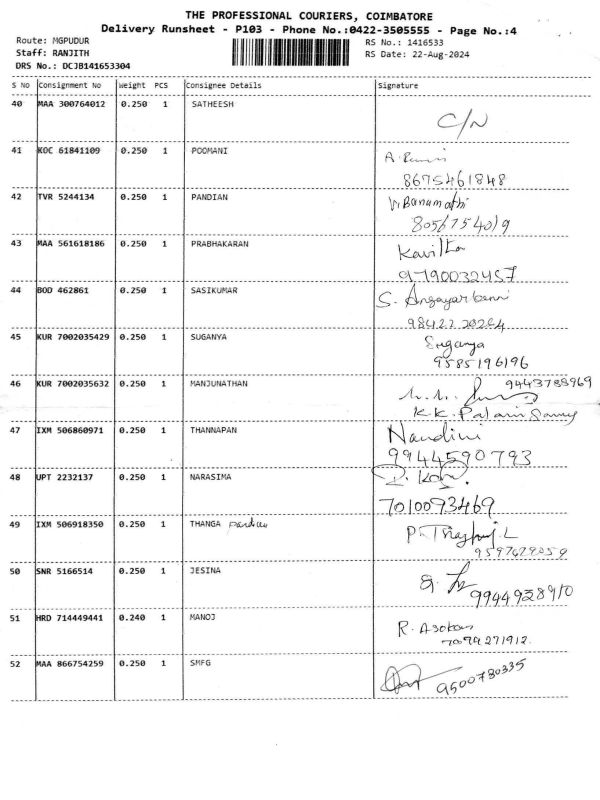 THE PROFESSIONAL COURIERS, COIMBATORE
Delivery Runsheet - P103 - Phone No.:0422-3505555 - Page No.:4
Route: MGPUDUR
RS No.: 1416533
Staff: RANJITH
RS Date: 22-Aug-2024
DRS No.: DCJB141653304
S No Consignment No Weight PCS Consignee Details Signature
40 MAA 300764012 0.250 1 SATHEESH
C/N
41 KOC 61841109 0.250 1 POOMANI
8675461848
42 TVR 5244134 0.250 1 PANDIAN V. Banumathi
8056754019
43 MAA 561618186 0.250 1 PRABHAKARAN
Kavitha
9790032457
44 BOD 462861 0.250 1 SASIKUMAR
S. Angayarkanni
98422 20264
45 KUR 7002035429 0.250 1 SUGANYA Suganya
9585196196
46 KUR 7002035632 0.250 1 MANJUNATHAN 9443788969
K.K. Palanisamy
47 IXM 506860971 0.250 1 THANNAPAN Nandini
9944590793
48 UPT 2232137 0.250 1 NARASIMA
7010093469
49 IXM 506918350 0.250 1 THANGA pandian
50 SNR 5166514 0.250 1 JESINA
9944928910
51 HRD 714449441 0.240 1 MANOJ
R. Asokan
7094271912
52 MAA 866754259 0.250 1 SMFG
9500780335